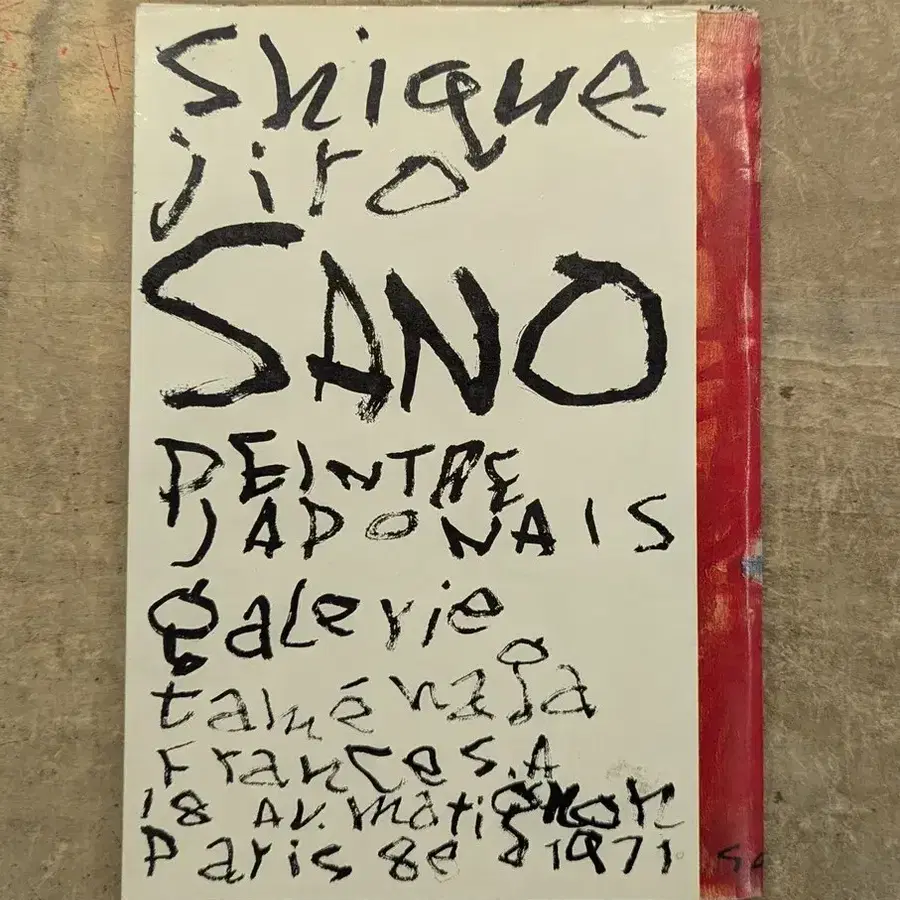 Shique
jiro
SANO
PEINTRE
JAPONAIS
galerie
taménaga
France S.A
18 AV. matignon
Paris 8e 1971